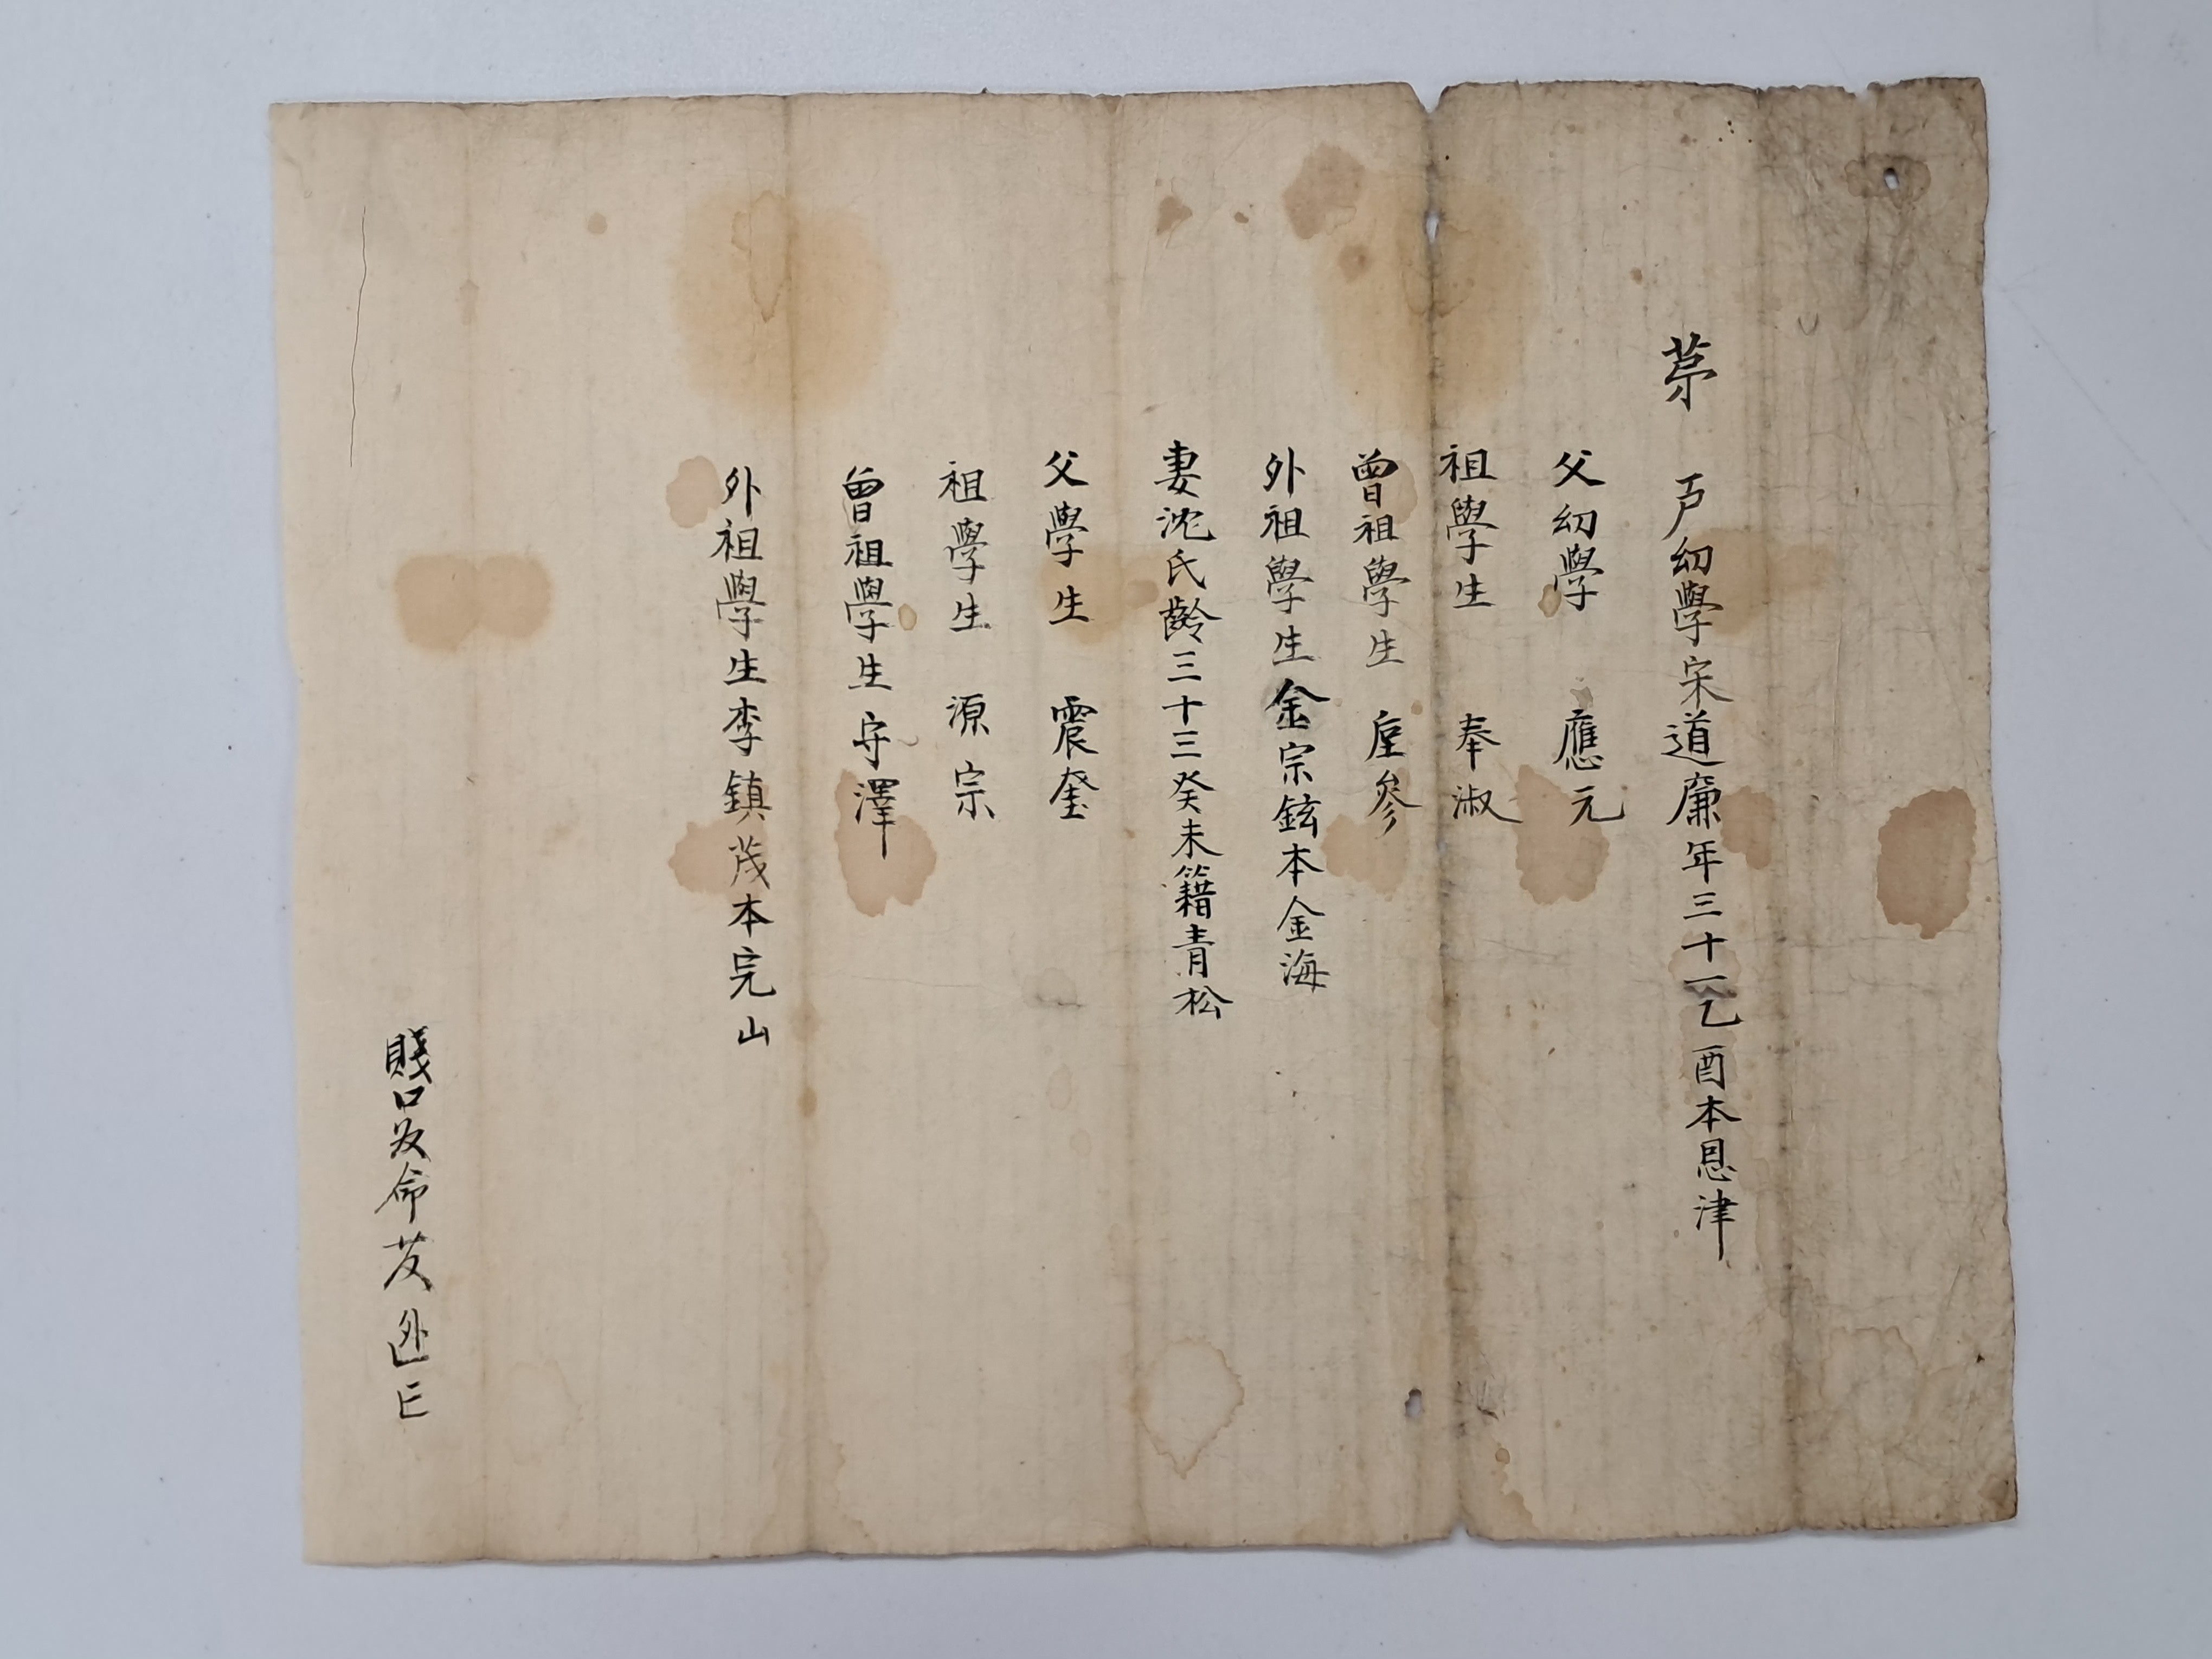 茅
戶幼學宋道廉年三十一乙酉本恩津
父幼學 應元
祖學生 奉淑
曾祖學生 垕參
外祖學生金宗鉉本金海
妻沈氏齡三十三癸未籍青松
父學生 震奎
祖學生 源宗
曾祖學生 守澤
外祖學生李鎮茂本完山
賤口 命